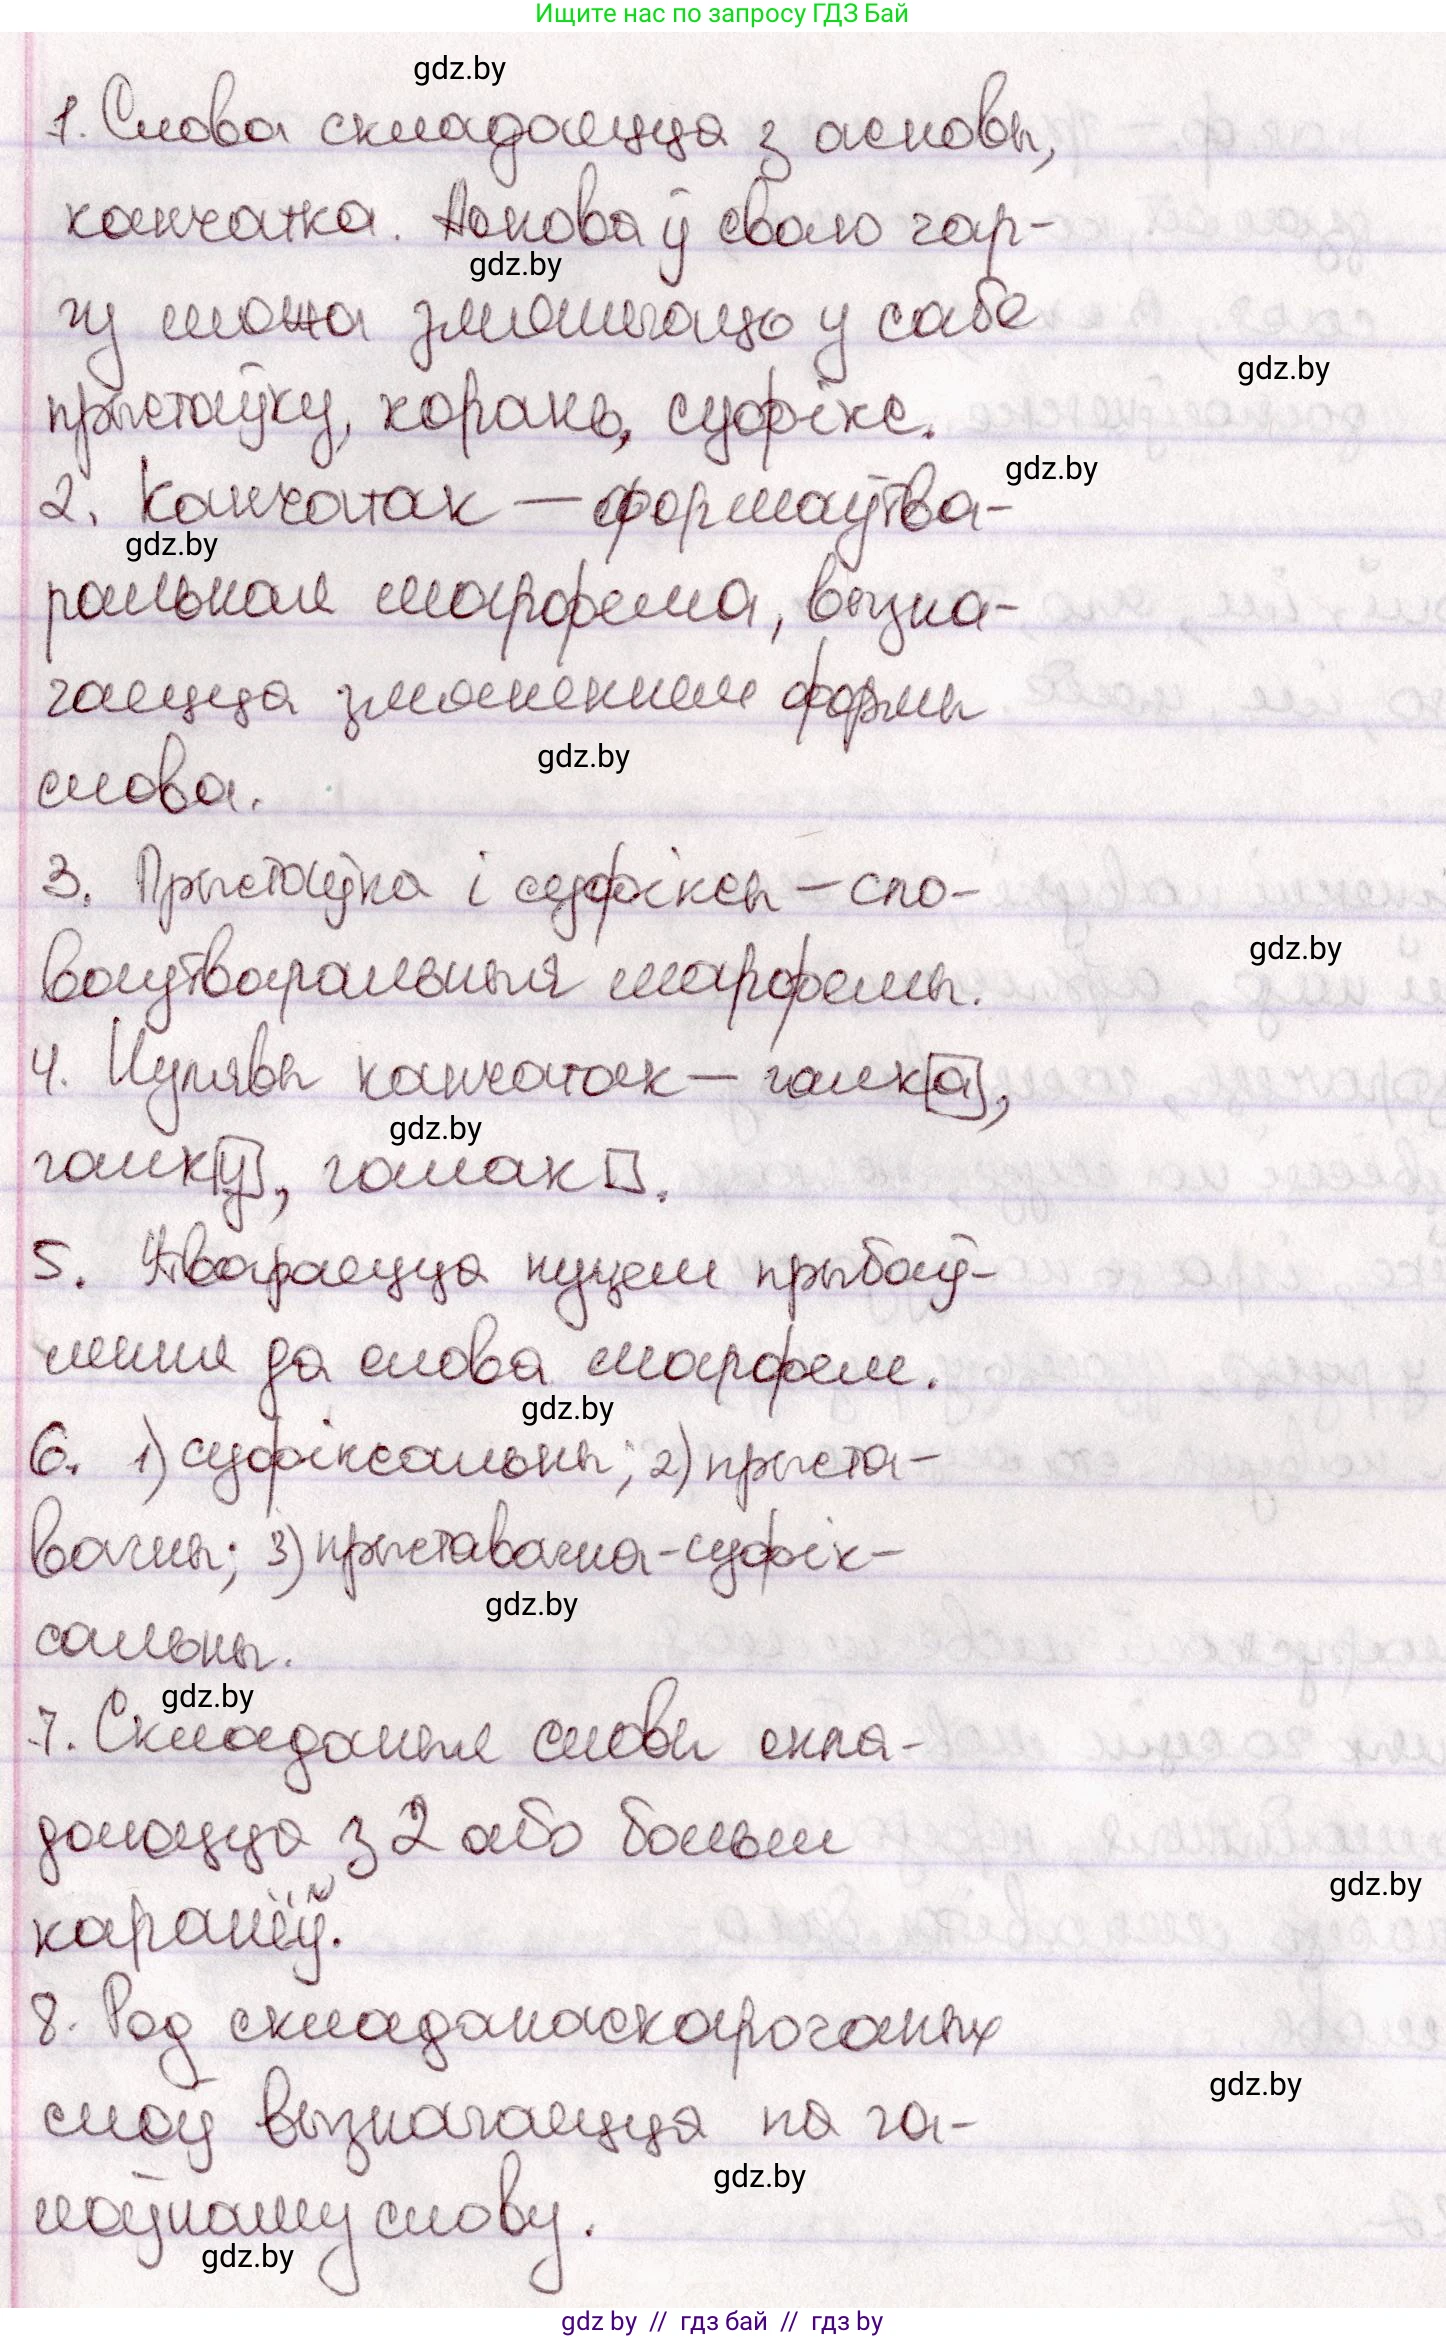 Ищите нас по запросу ГДЗ Бай
gdz.by
1. Слова складаецца з асновы,
канчатка. Аснова ў сваю чар-
gdz.by
гу можа змяшчаць у сабе
gdz.by
прыстаўку, корань, суфікс.
gdz.by
2. Канчатак – формаўтва-
gdz.by
ральная марфема, вызна-
чаецца змяненнем формы
gdz.by
слова.
3. Прыстаўка і суфіксы – сло-
gdz.by
ваўтваральныя марфемы.
4. Нулявы канчатак – галк[а],
gdz.by
галк[у], галак□.
5. Утвараецца шляхам прыбаў-
лення да слова марфем.
gdz.by
6. 1) суфіксальны; 2) прыста-
вачны; 3) прыставачна-суфік-
gdz.by
сальны.
gdz.by
7. Складаныя словы скла-
даюцца з 2 або больш
gdz.by
каранёў.
8. Род складанаскарочаных
gdz.by
слоў вызначаецца па га-
gdz.by
лоўнаму слову.
gdz.by
gdz by // гдз бай // гдз by